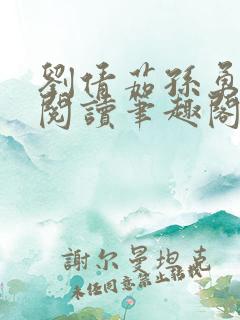 劉倩茹孫勇
閱讀筆趣閣
謝尔曼坦克
未经同意禁止转载